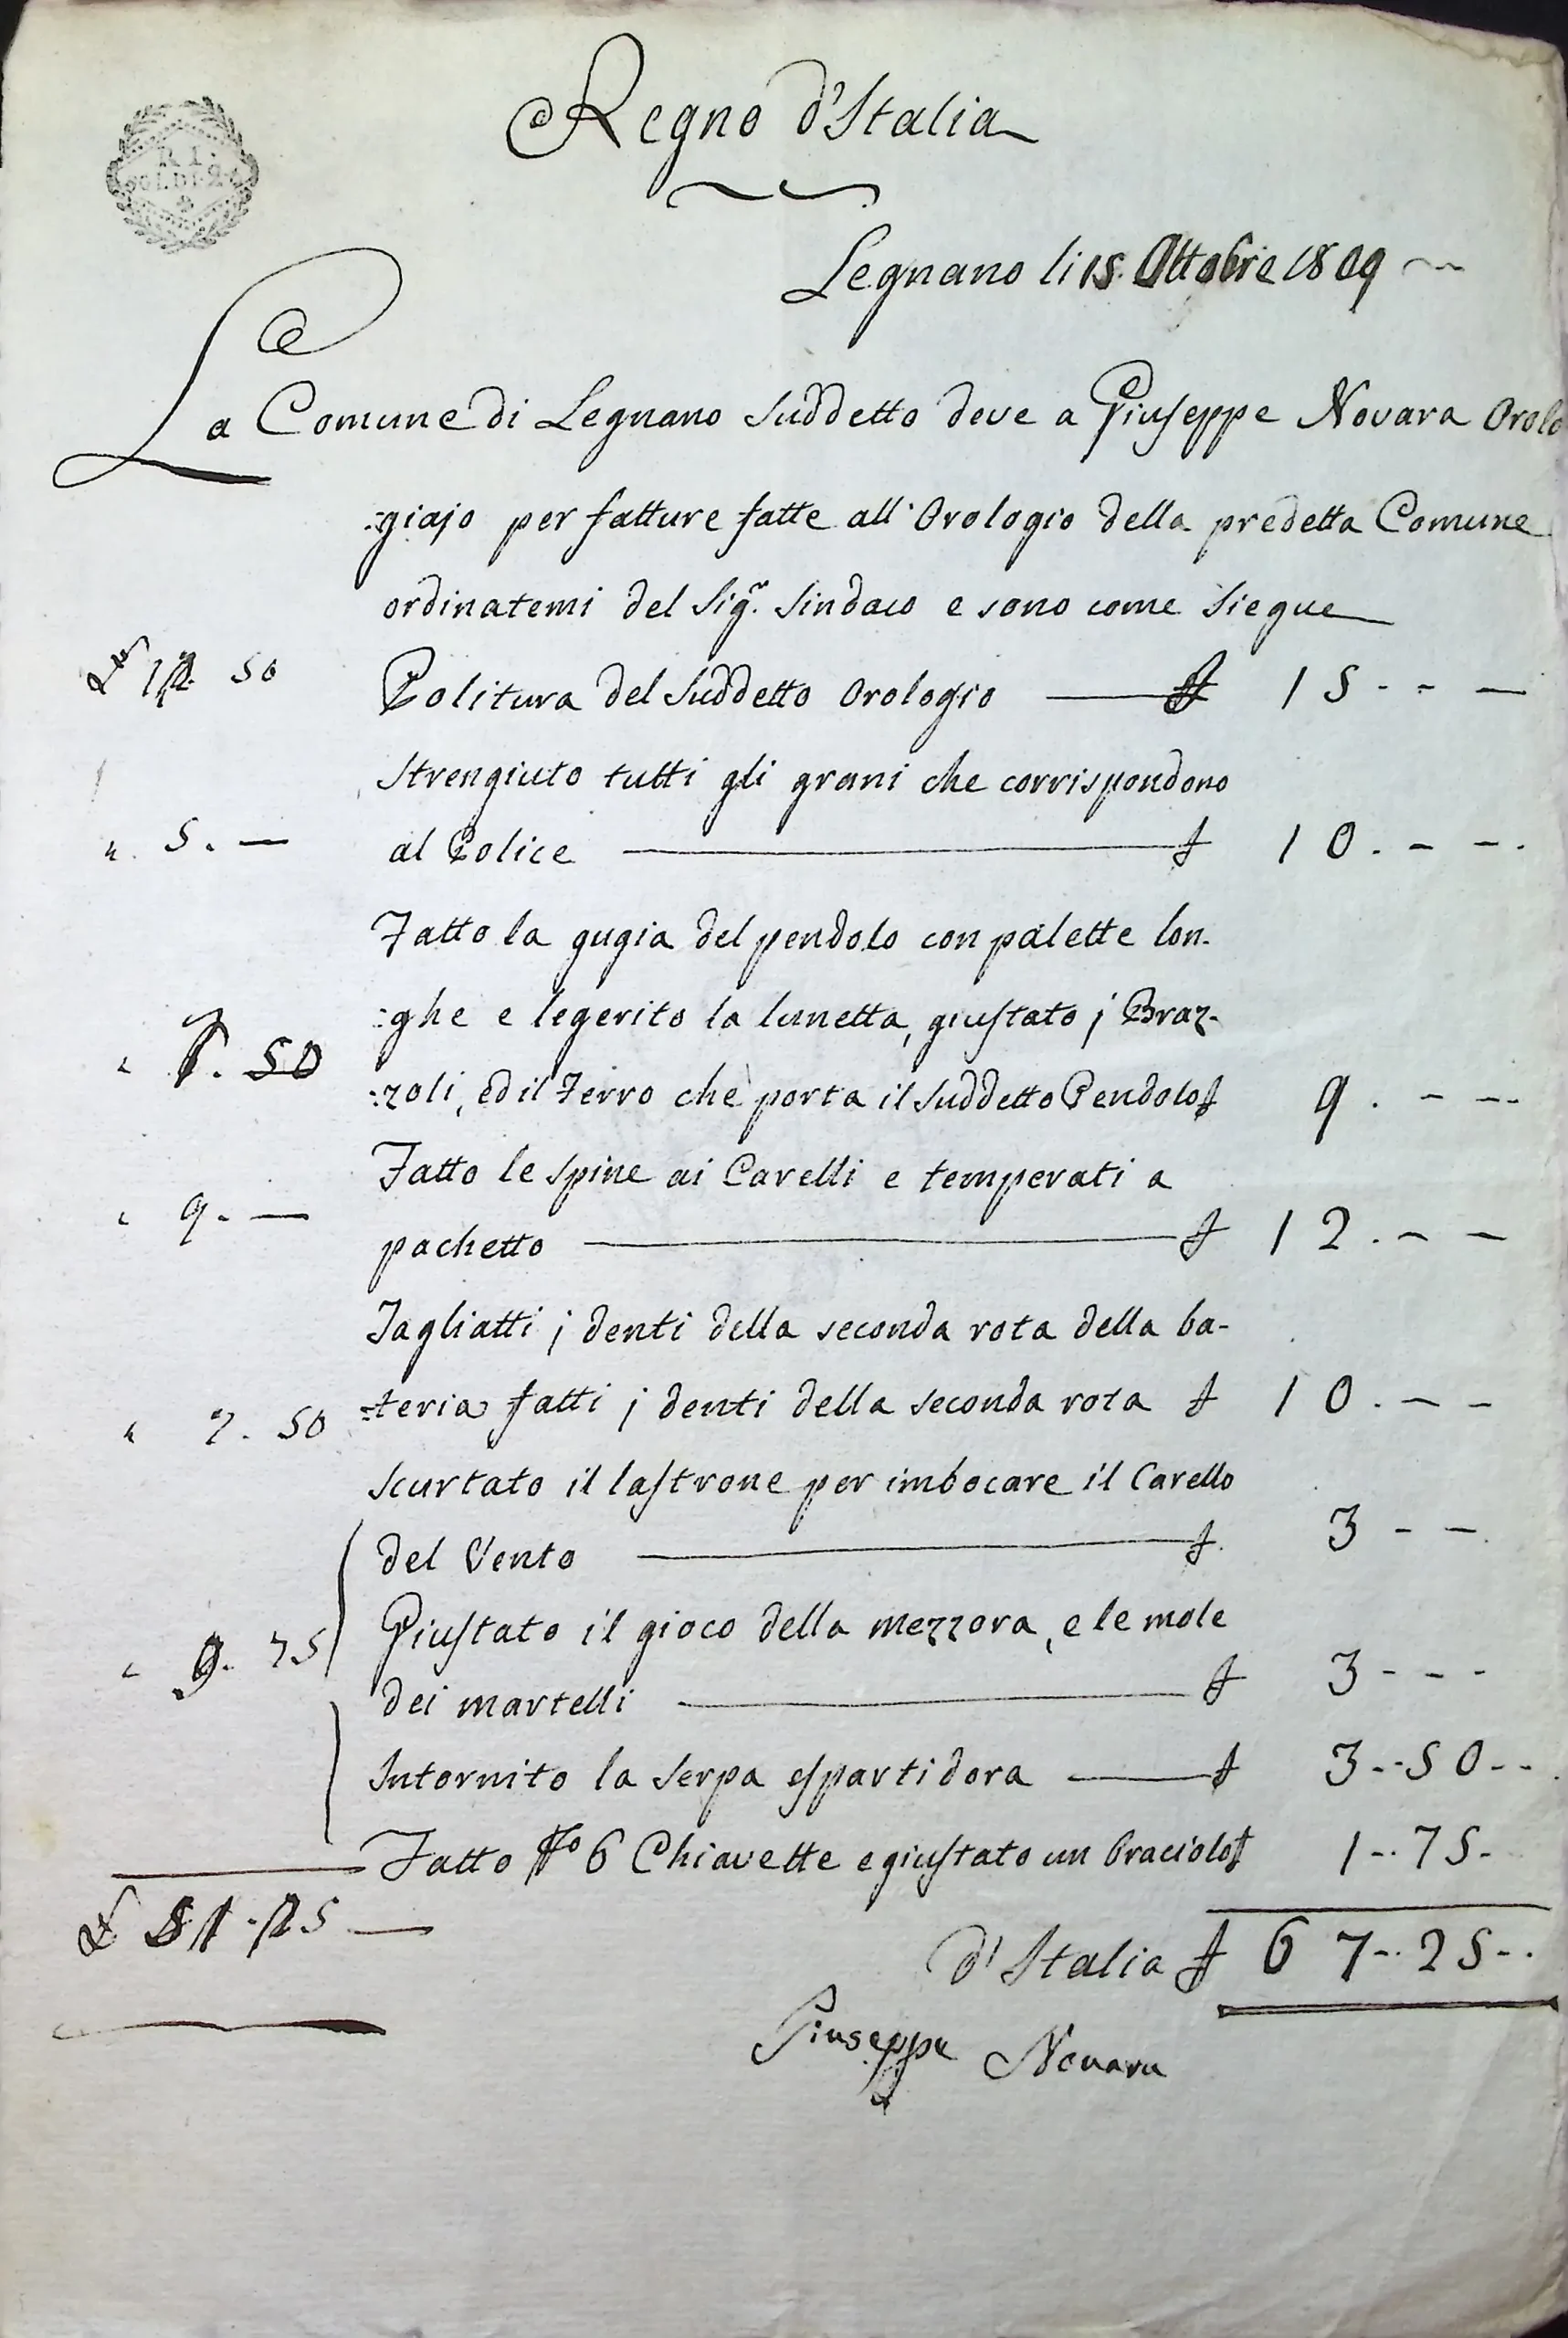 Regno d'Italia
R. I.
SOLDI 24
Legnano li 15. Ottobre 1809
La Comune di Legnano Suddetto deve a Giuseppe Novara Orolo
:giajo per fatture fatte all'Orologio della predetta Comune
ordinatemi del Sig.r Sindaco e sono come Siegue
£ 12 50 Politura del Suddetto Orologio £ 15 - - -
Strengiuto tutti gli grani che corrispondono
" 5. - al Police £ 10. - - .
Fatto la gugia del pendolo con palette lon-
:ghe e legerito la lunetta, giustato j Braz-
" 50 :zoli, ed il Ferro che porta il Suddetto Pendolo £ 9 . - - -
Fatto le spine ai Carelli e temperati a
" 9. - pachetto £ 12 . - -
Tagliatti j denti della seconda rota della ba-
" 7. 50 =teria fatti j denti della seconda rota £ 10 . - -
Scurtato il lastrone per imbocare il Carello
del Vento £ 3 - -
Giustato il gioco della mezzora, e le mole
" 9. 75 dei martelli £ 3 - - -
Intornito la Serpa spartidora £ 3 - - 50 - -
Fatto No 6 Chiavette e giustato un braciolo £ 1 - . 75 -
£ 51 . 25 -
d'Italia £ 67 - . 25 - .
Giuseppe Novara